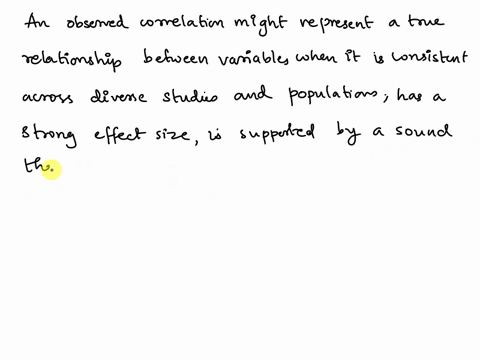 An observed correlation might represent a true
relationship between variables when it is consistent
across diverse studies and populations, has a
strong effect size, is supported by a sound
th